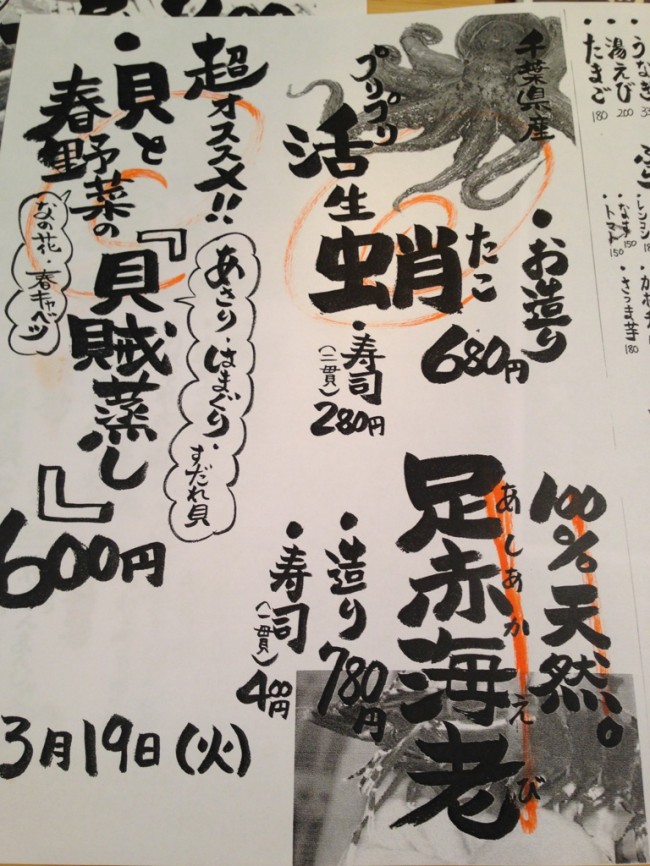 うなぎ
湯えび 200
たまご 180
なま 150
トマト 150
さつま芋 180
千葉県産
プリプリ
活生蛸
たこ
・お造り
680円
・寿司
(二貫)
280円
100%天然。
足赤海老
あしあかえび
・造り
780円
・寿司
(一貫)
400円
超オススメ!!
・貝と
春野菜の
なの花・春キャベツ
『貝賊蒸し』
あさり・はまぐり・すだれ貝
600円
3月19日(火)